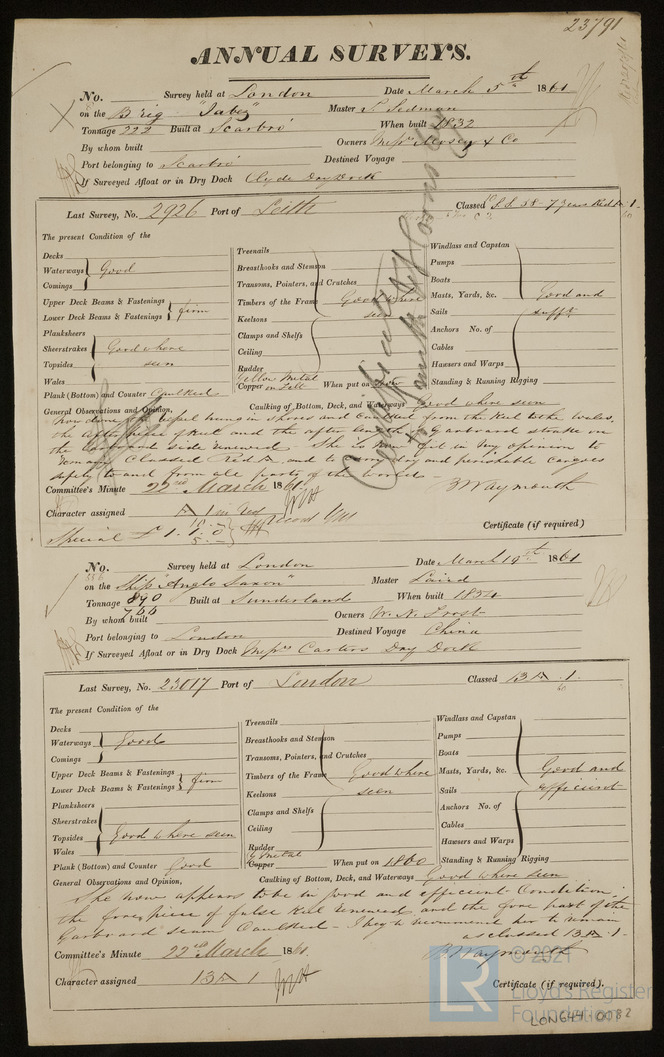 23791
ANNUAL SURVEYS.
No. Survey held at London Date March 5th 1861
on the Brig "Jabez" Master S. Sedman
Tonnage 222 Built at Scarbro' When built 1832
By whom built Owners Messrs Mosey & Co
Port belonging to Scarbro' Destined Voyage
If Surveyed Afloat or in Dry Dock Clyde Dry Dock
Last Survey, No. 2926 Port of Leith Classed
The present Condition of the
Decks
Waterways Good
Comings
Upper Deck Beams & Fastenings
Lower Deck Beams & Fastenings firm
Planksheers
Sheerstrakes Good where
Topsides seen
Wales
Plank (Bottom) and Counter Caulked
Treenails
Breasthooks and Stemson
Transoms, Pointers, and Crutches
Timbers of the Frame Good where
Keelsons seen
Clamps and Shelfs
Ceiling
Rudder
Yellow Metal
Copper on Felt When put on
Windlass and Capstan
Pumps
Boats
Masts, Yards, &c. Good and
Sails
Anchors No. of
Cables
Hawsers and Warps
Standing & Running Rigging
General Observations and Opinion, Caulking of Bottom, Deck, and Waterways Good where seen
and Caulked from the Keel to the Wales,
the after piece of keel and the after length of Garboard strake on
the side renewed. She is now fit in my opinion to
remain Classed Red A and to carry dry and perishable cargoes
safely to and from all parts of the world.
B Waymouth
Committee's Minute 22nd March 1861
Character assigned A 1 in red
Special £1.1.0
Certificate (if required)
No. Survey held at London Date March 19th 1861
on the Ship "Anglo Saxon" Master Laird
Tonnage 890 Built at Sunderland When built 1854
766
By whom built Owners W. N. Frost
Port belonging to London Destined Voyage China
If Surveyed Afloat or in Dry Dock Messrs Carters Dry Dock
Last Survey, No. 23017 Port of London Classed 13 A 1.
60
The present Condition of the
Decks
Waterways Good
Comings
Upper Deck Beams & Fastenings
Lower Deck Beams & Fastenings firm
Planksheers
Sheerstrakes
Topsides Good where seen
Wales
Plank (Bottom) and Counter Good
Treenails
Breasthooks and Stemson
Transoms, Pointers, and Crutches
Timbers of the Frame Good where
Keelsons seen
Clamps and Shelfs
Ceiling
Rudder
Y Metal
Copper When put on 1860
Windlass and Capstan
Pumps
Boats
Masts, Yards, &c. Good and
Sails efficient
Anchors No. of
Cables
Hawsers and Warps
Standing & Running Rigging
General Observations and Opinion, Caulking of Bottom, Deck, and Waterways Good where seen
She now appears to be in good and efficient Condition.
the fore piece of false Keel renewed and the fore part of the
Garboard seam Caulked - I beg to recommend her to remain
as classed 13 A 1.
B. Waymouth
Committee's Minute 22nd March 1861.
Character assigned 13 A 1
Certificate (if required).
LR © 2021
Lloyd's Register
Foundation
LON644-0082